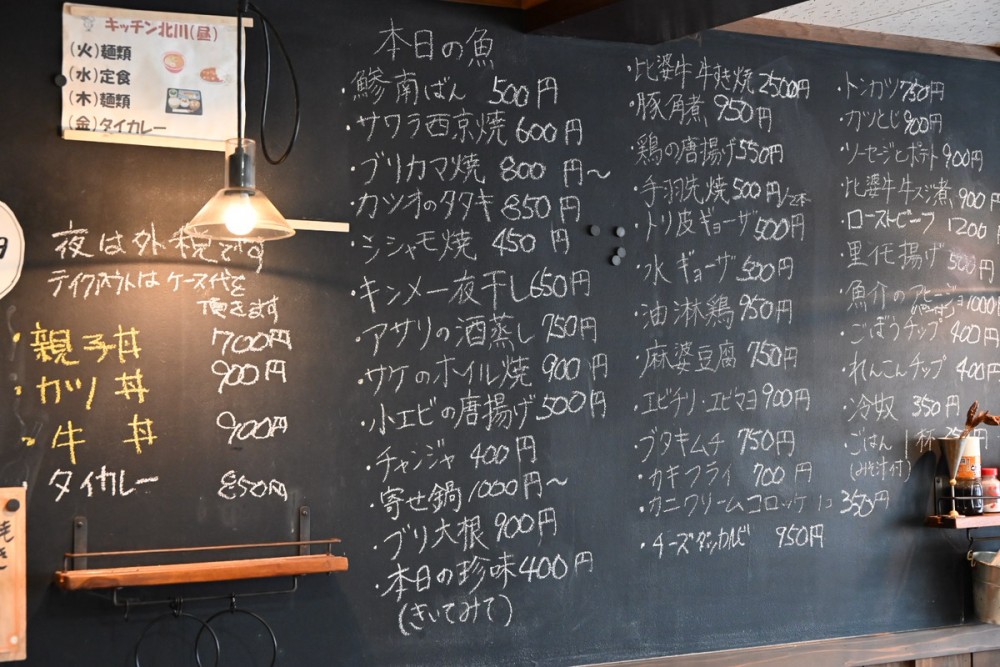 キッチン北川(昼)
(火)麺類
(水)定食
(木)麺類
(金)タイカレー
夜は外税です
テイクアウトはケース代を
頂きます
・親子丼 700円
・カツ丼 900円
・牛丼 900円
タイカレー 850円
本日の魚
・鯵南ばん 500円
・サワラ西京焼 600円
・ブリカマ焼 800円〜
・カツオのタタキ 850円
・シシャモ焼 450円
・キンメ一夜干し 650円
・アサリの酒蒸し 750円
・サケのホイル焼 900円
・小エビの唐揚げ 500円
・チャンジャ 400円
・寄せ鍋 1000円〜
・ブリ大根 900円
・本日の珍味 400円
(きいてみて)
・比婆牛牛すき焼 2500円
・豚角煮 950円
・鶏の唐揚げ 550円
・手羽先焼 500円/2本
・トリ皮ギョーザ 500円
・水ギョーザ 500円
・油淋鶏 950円
・麻婆豆腐 750円
・エビチリ・エビマヨ 900円
・ブタキムチ 750円
・カキフライ 700円
・カニクリームコロッケ 1コ 350円
・チーズダッカルビ 950円
・トンカツ 750円
・カツとじ 900円
・ソーセージとポテト 900円
・比婆牛牛スジ煮 900円
・ローストビーフ 1200円
・里芋揚げ 500円
・魚介のアヒージョ 1000円
・ごぼうチップ 400円
・れんこんチップ 400円
・冷奴 350円
・ごはん 1杯
(みそ汁付)